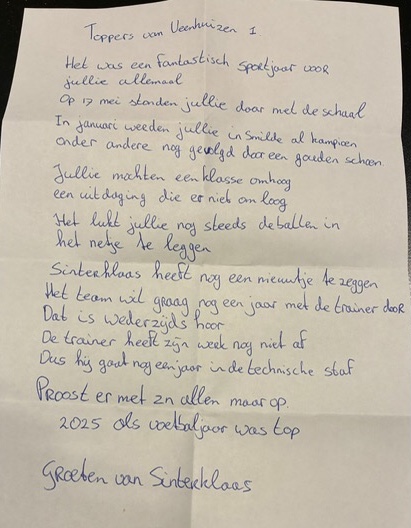 Toppers van Veenhuizen 1
Het was een fantastisch sportjaar voor
jullie allemaal
Op 17 mei stonden jullie daar met de schaal
In januari werden jullie in Smilde al kampioen
onder andere nog gevolgd door een gouden schoen
Jullie mochten een klasse omhoog
een uitdaging die er niet om loog
Het lukt jullie nog steeds de ballen in
het netje te leggen
Sinterklaas heeft nog een nieuwtje te zeggen
Het team wil graag nog een jaar met de trainer door
Dat is wederzijds hoor
De trainer heeft zijn week nog niet af
Dus hij gaat nog een jaar in de technische staf
Proost er met zn allen maar op.
2025 als voetbaljaar was top
Groeten van Sinterklaas